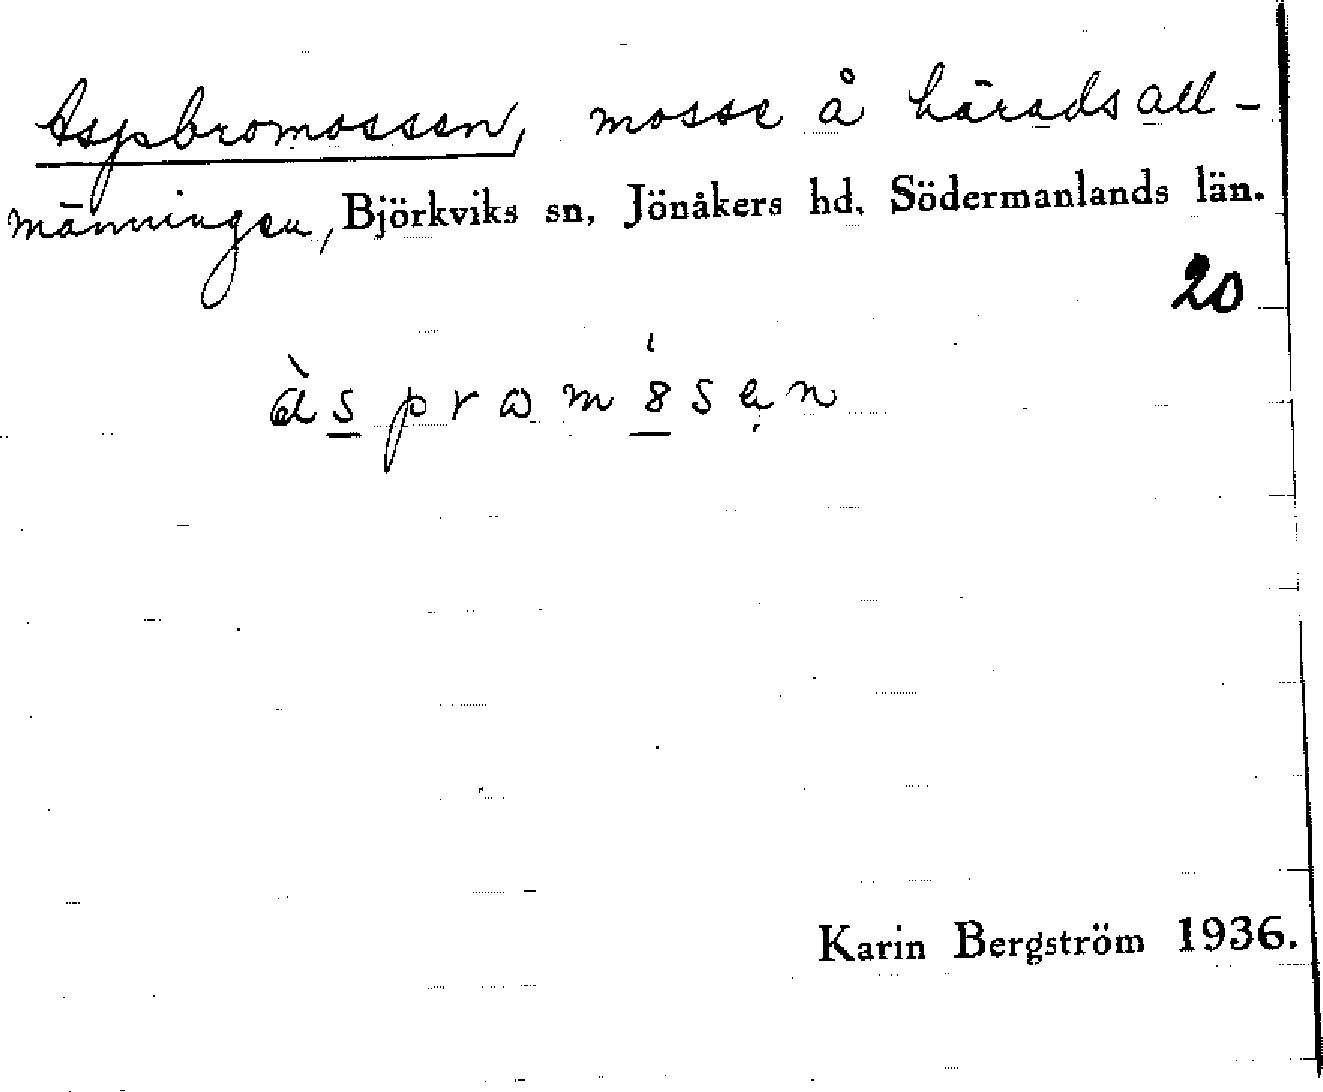 Aspbromossen, mosse å häradsall-
männingen, Björkviks sn, Jönåkers hd, Södermanlands län.
20
àspromꝏ̇sen
Karin Bergström 1936.